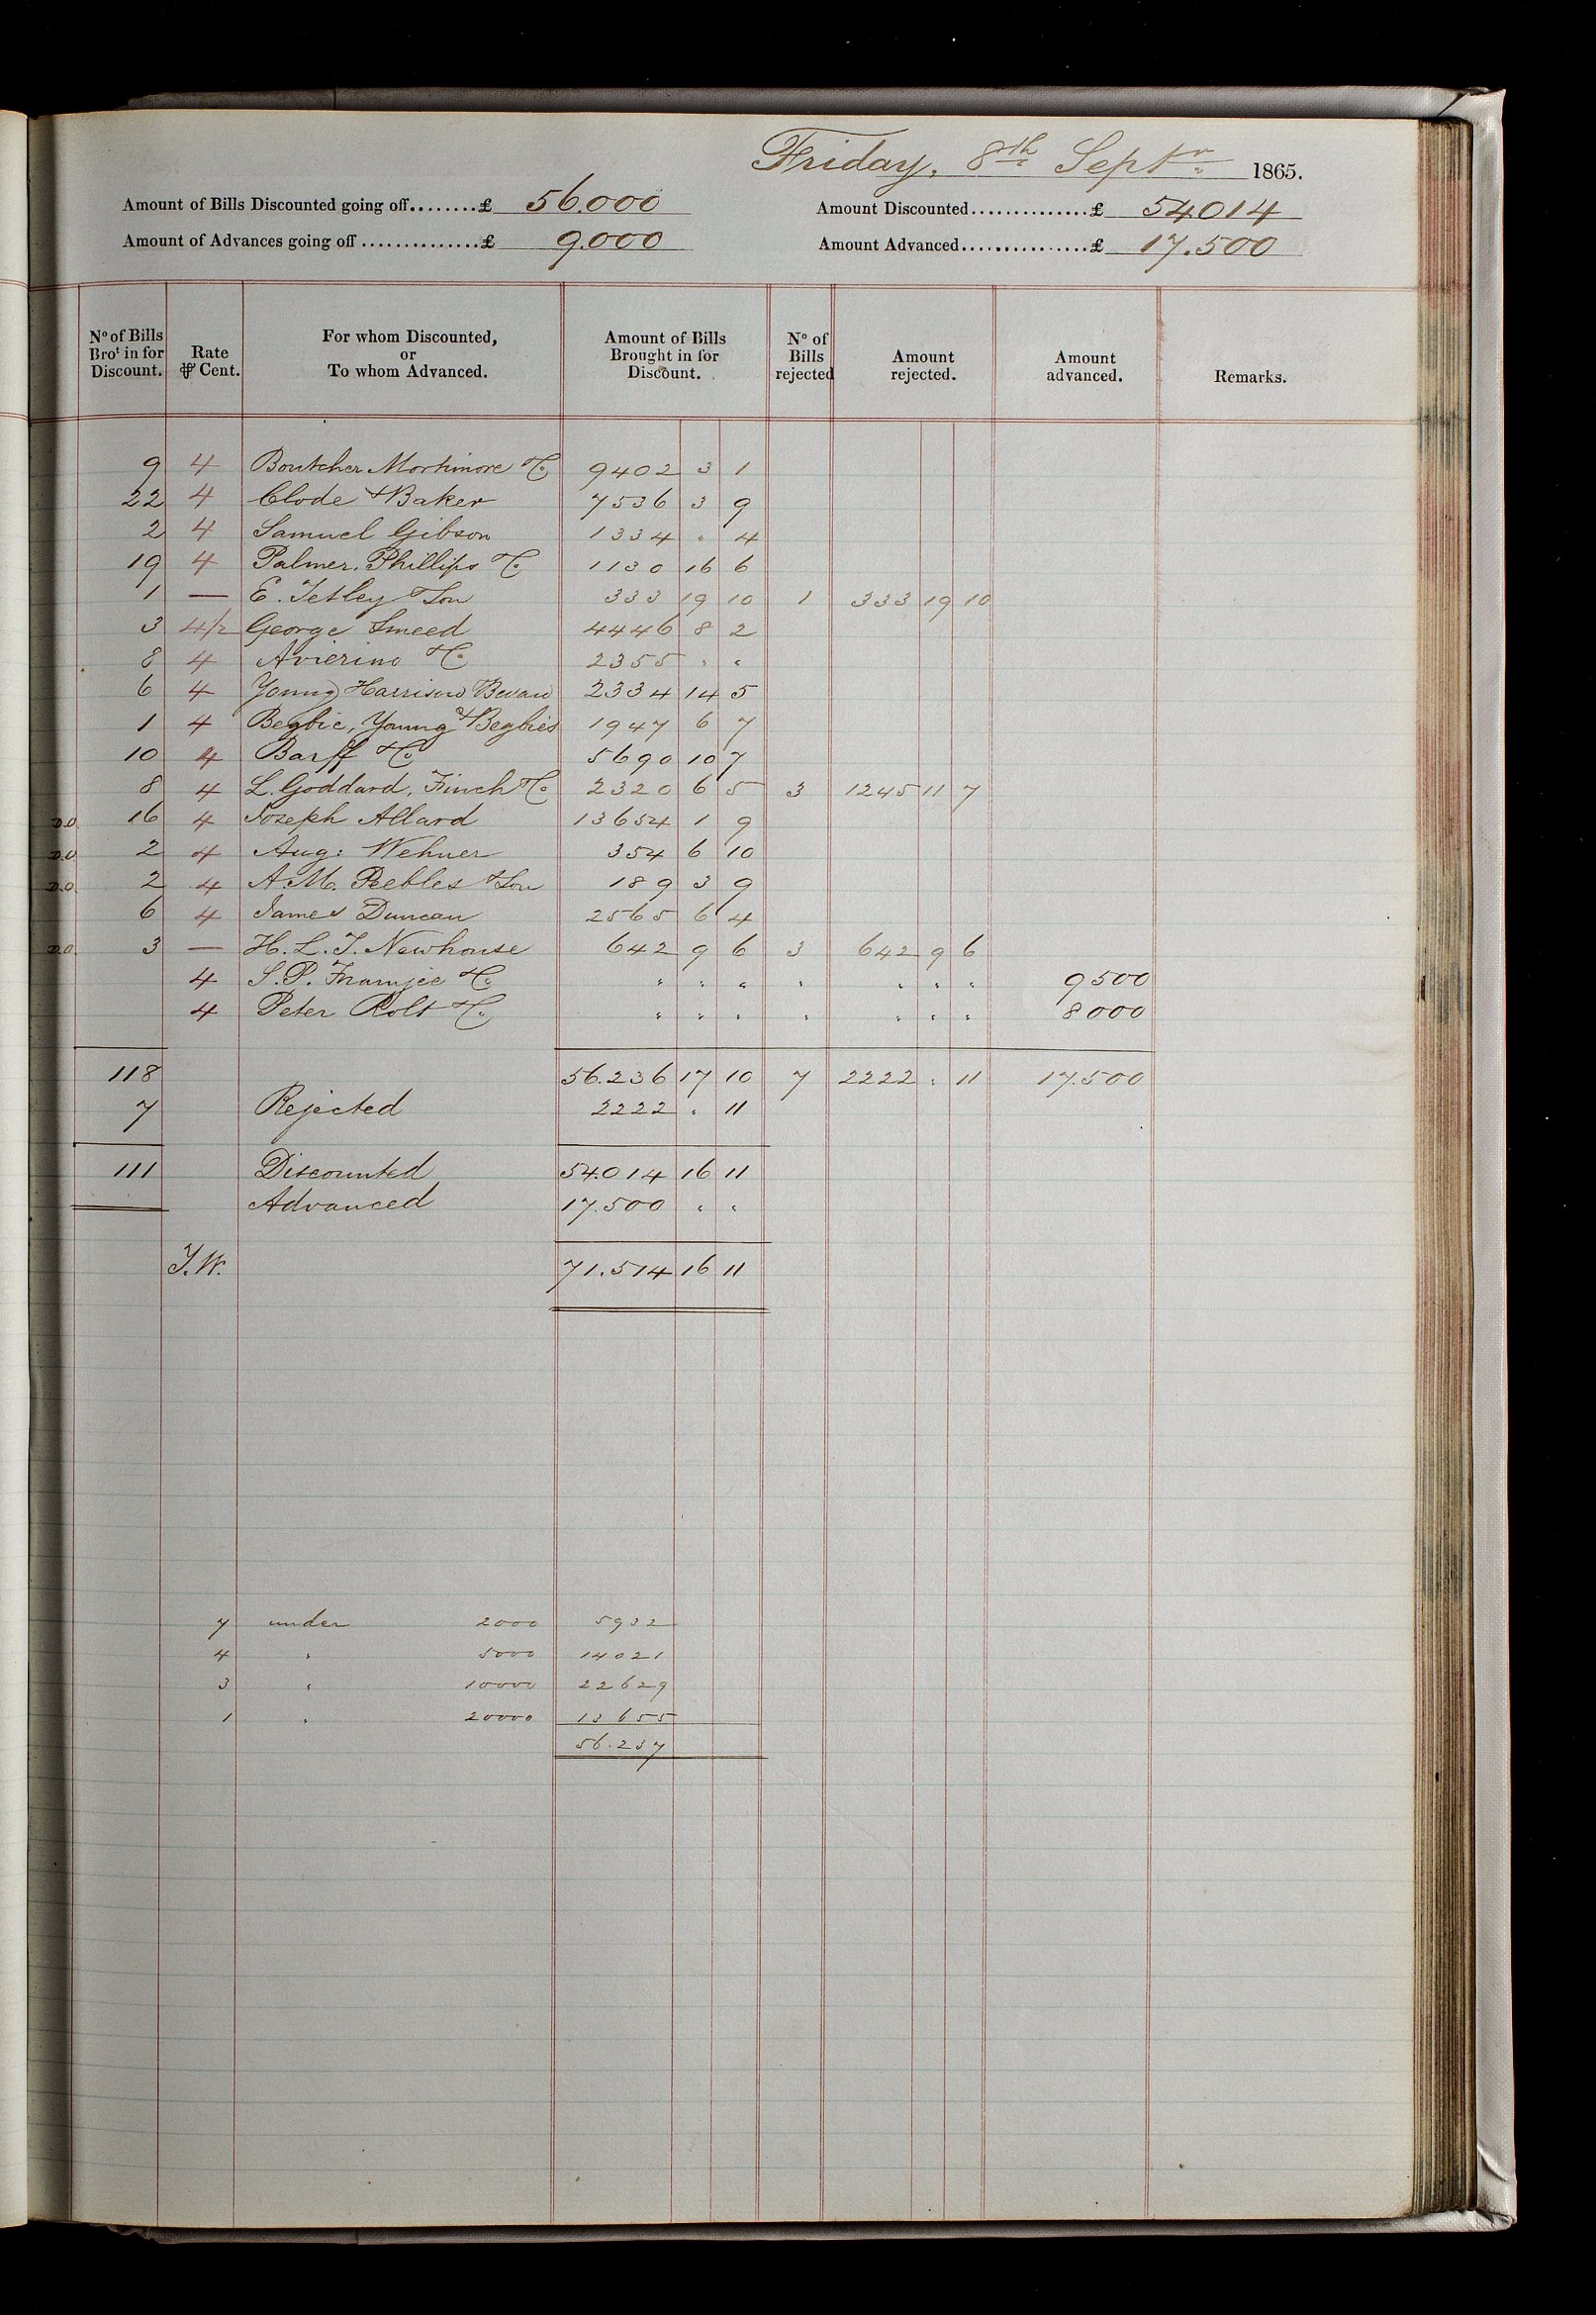 Friday, 8th Septr 1865.
Amount of Bills Discounted going off........£ 56.000 Amount Discounted..............£ 54.014
Amount of Advances going off..............£ 9.000 Amount Advanced................£ 17.500
No of Bills Brot in for Discount. Rate ⅌ Cent. For whom Discounted, or To whom Advanced. Amount of Bills Brought in for Discount. No of Bills rejected Amount rejected. Amount advanced. Remarks.
9 4 Boutcher Mortimore & Co 9402 3 1
22 4 Clode & Baker 7536 3 9
2 4 Samuel Gibson 1334 " 4
19 4 Palmer, Phillips & Co 1130 16 6
1 — E. Tetley & Son 333 19 10 1 333 19 10
3 4½ George Smeed 4446 8 2
8 4 Avierino & Co 2355 " "
6 4 Young Harrison Bevan 2334 14 5
1 4 Begbie, Young & Begbies 1947 6 7
10 4 Barff & Co 5690 10 7
8 4 L. Goddard, Finch & Co 2320 6 5 3 1245 11 7
D.O. 16 4 Joseph Allard 13654 1 9
D.O. 2 4 Aug: Wehner 354 6 10
D.O. 2 4 A. M. Peebles & Son 189 3 9
6 4 James Duncan 2565 6 4
D.O. 3 — H. L. T. Newhouse 642 9 6 3 642 9 6
4 S. P. Framjee & Co " " " " " " " 9500
4 Peter Rolt & Co " " " " " " " 8000
118 56.236 17 10 7 2222 " 11 17.500
7 Rejected 2222 " 11
111 Discounted 54.014 16 11
Advanced 17.500 " "
T.W. 71.514 16 11
7 under 2000 5932
4 " 5000 14021
3 " 10000 22629
1 " 20000 13655
56.237